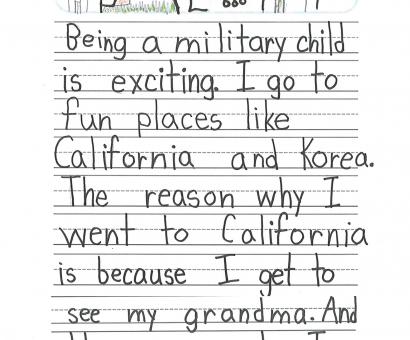 Being a military child
is exciting. I go to
fun places like
California and Korea.
The reason why I
went to California
is because I get to
see my grandma. And